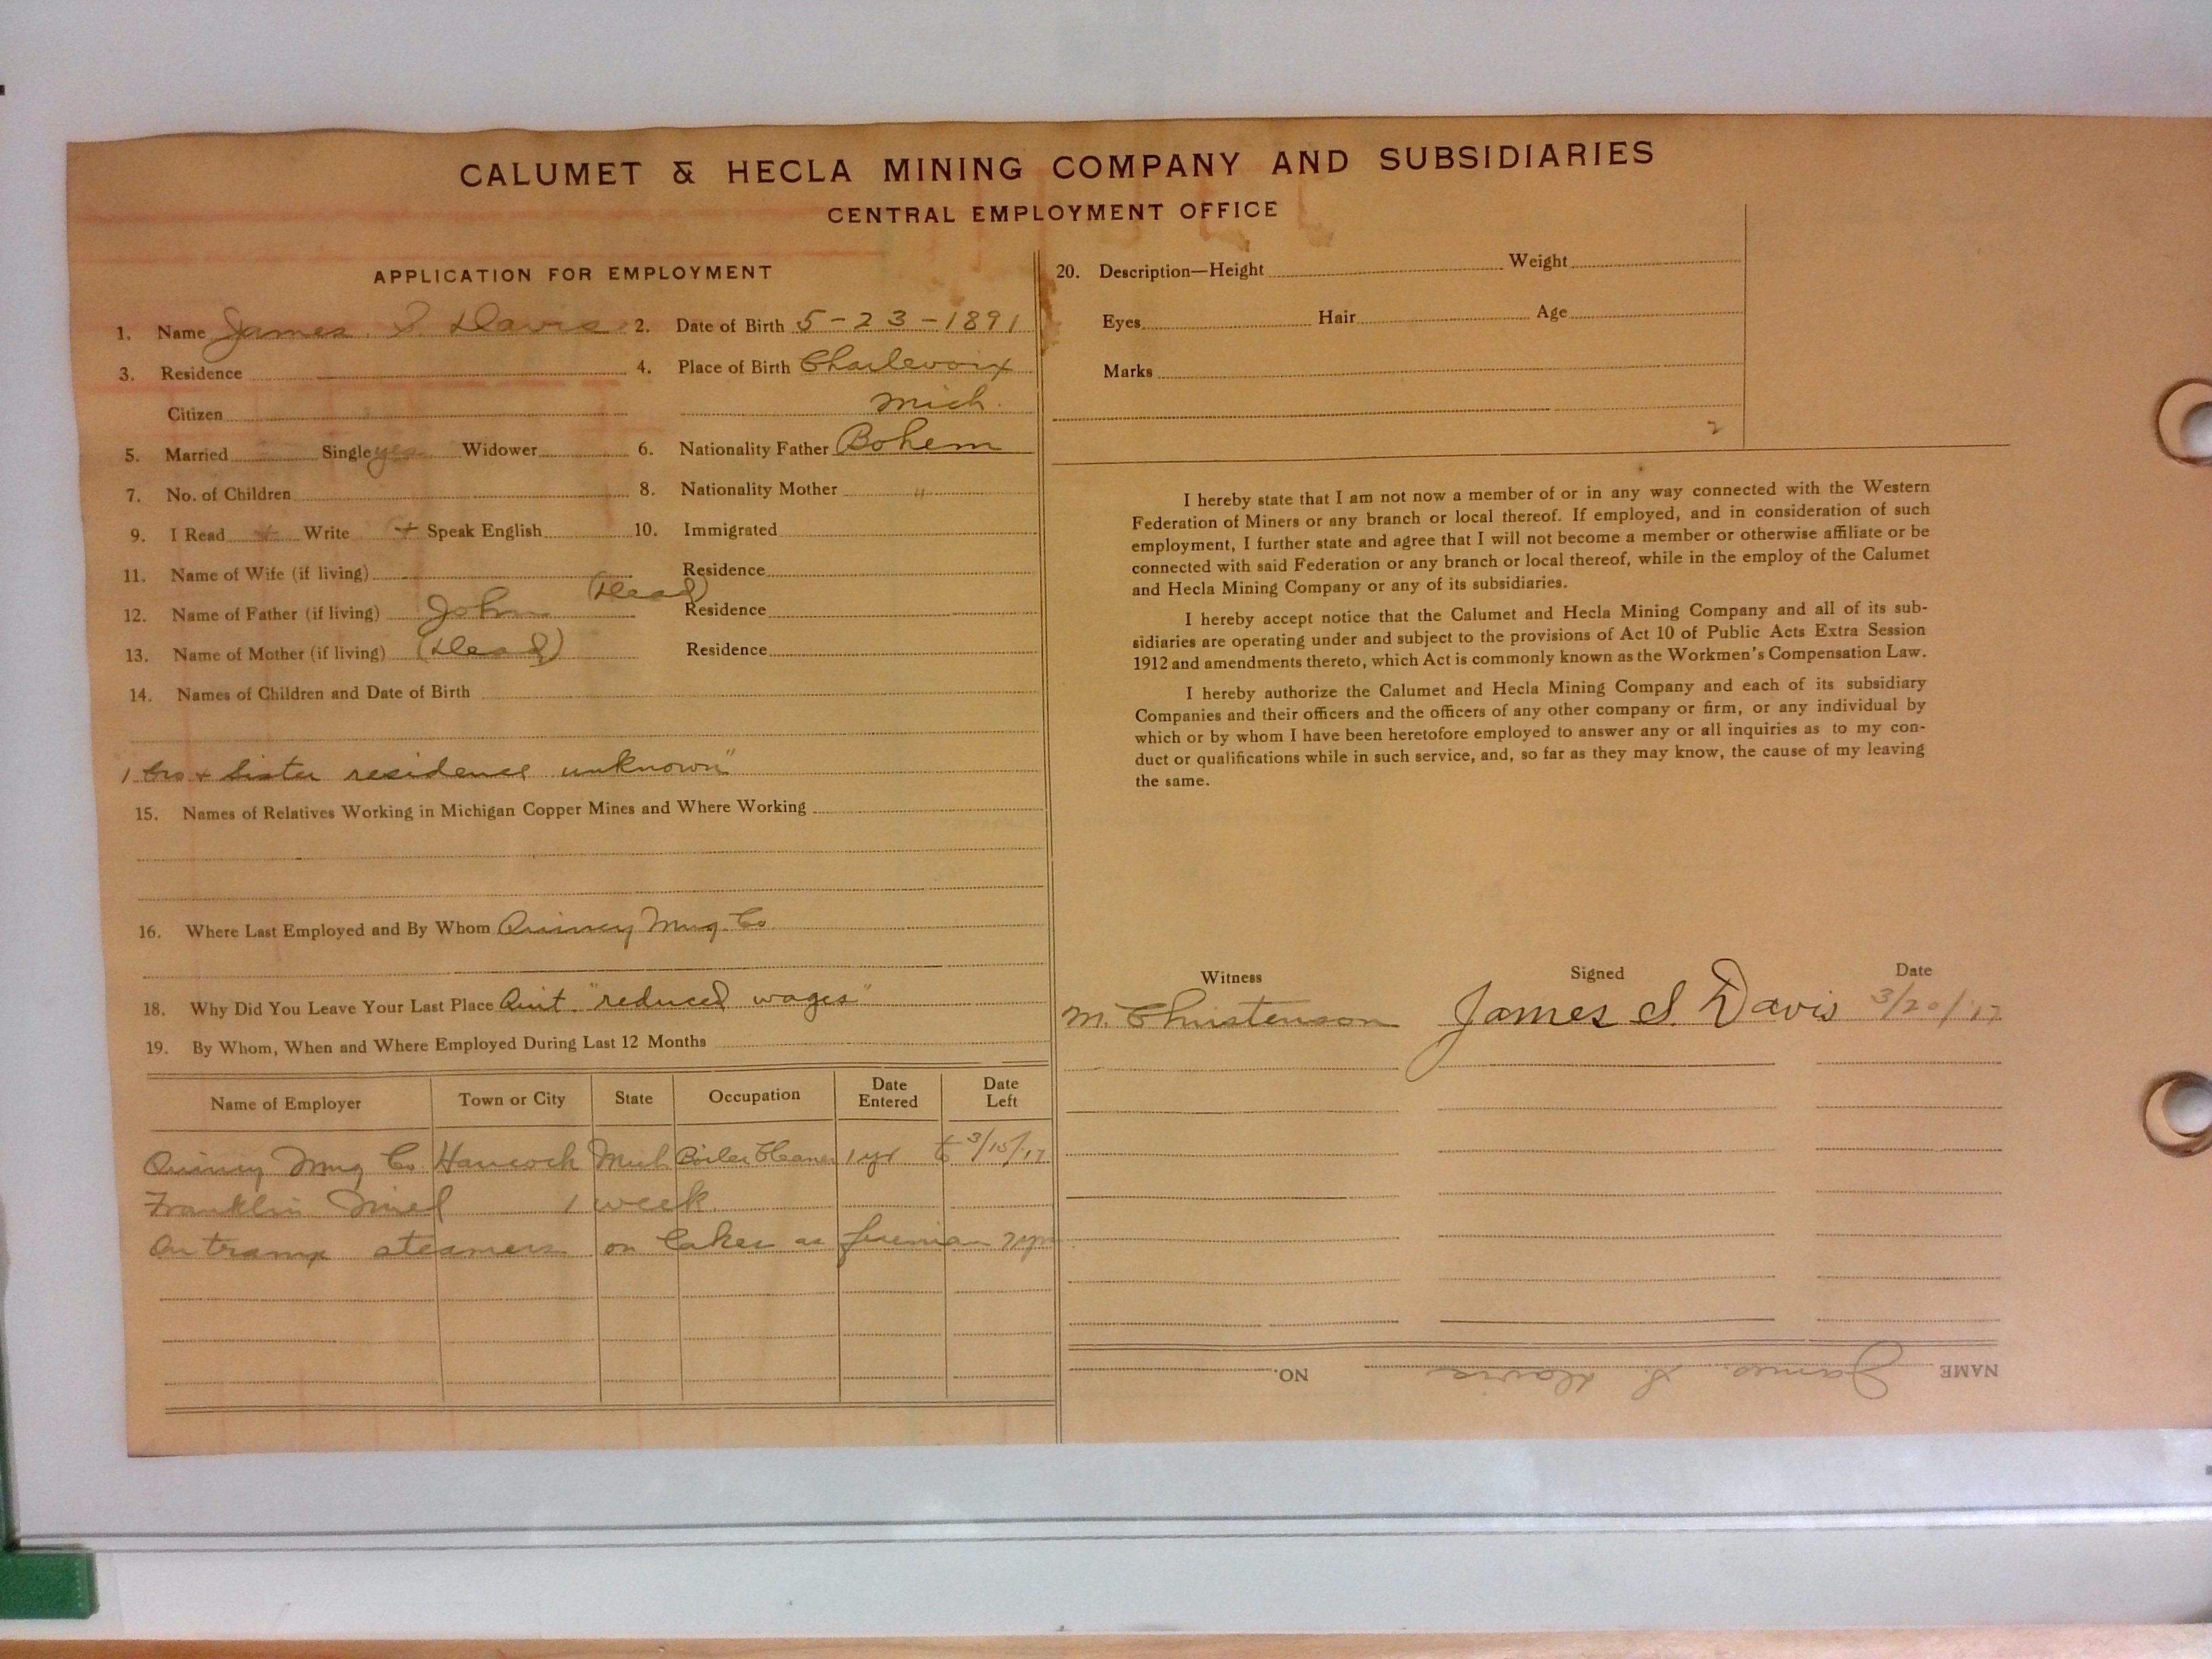 CALUMET & HECLA MINING COMPANY AND SUBSIDIARIES
CENTRAL EMPLOYMENT OFFICE
APPLICATION FOR EMPLOYMENT
1. Name James. S. Davis 2. Date of Birth 5-23-1891
3. Residence 4. Place of Birth Charlevoix
Citizen Mich.
5. Married Single yes Widower 6. Nationality Father Bohem
7. No. of Children 8. Nationality Mother "
9. I Read + Write + Speak English 10. Immigrated
11. Name of Wife (if living) Residence
12. Name of Father (if living) John (Dead) Residence
13. Name of Mother (if living) (Dead) Residence
14. Names of Children and Date of Birth
1 bro + Sister residence unknown"
15. Names of Relatives Working in Michigan Copper Mines and Where Working
16. Where Last Employed and By Whom Quincy Mng. Co
18. Why Did You Leave Your Last Place Quit. "reduced wages"
19. By Whom, When and Where Employed During Last 12 Months
Name of Employer Town or City State Occupation Date Entered Date Left
Quincy Mng Co Hancock Mich Boiler Cleaner 1 yr to 3/15/17
Franklin 1 week.
On tramp steamers on lakes as fireman
20. Description—Height Weight
Eyes Hair Age
Marks
2
I hereby state that I am not now a member of or in any way connected with the Western
Federation of Miners or any branch or local thereof. If employed, and in consideration of such
employment, I further state and agree that I will not become a member or otherwise affiliate or be
connected with said Federation or any branch or local thereof, while in the employ of the Calumet
and Hecla Mining Company or any of its subsidiaries.
I hereby accept notice that the Calumet and Hecla Mining Company and all of its sub-
sidiaries are operating under and subject to the provisions of Act 10 of Public Acts Extra Session
1912 and amendments thereto, which Act is commonly known as the Workmen's Compensation Law.
I hereby authorize the Calumet and Hecla Mining Company and each of its subsidiary
Companies and their officers and the officers of any other company or firm, or any individual by
which or by whom I have been heretofore employed to answer any or all inquiries as to my con-
duct or qualifications while in such service, and, so far as they may know, the cause of my leaving
the same.
Witness Signed Date
M. Christenson James S. Davis 3/20/17
NAME James. S. Davis NO.